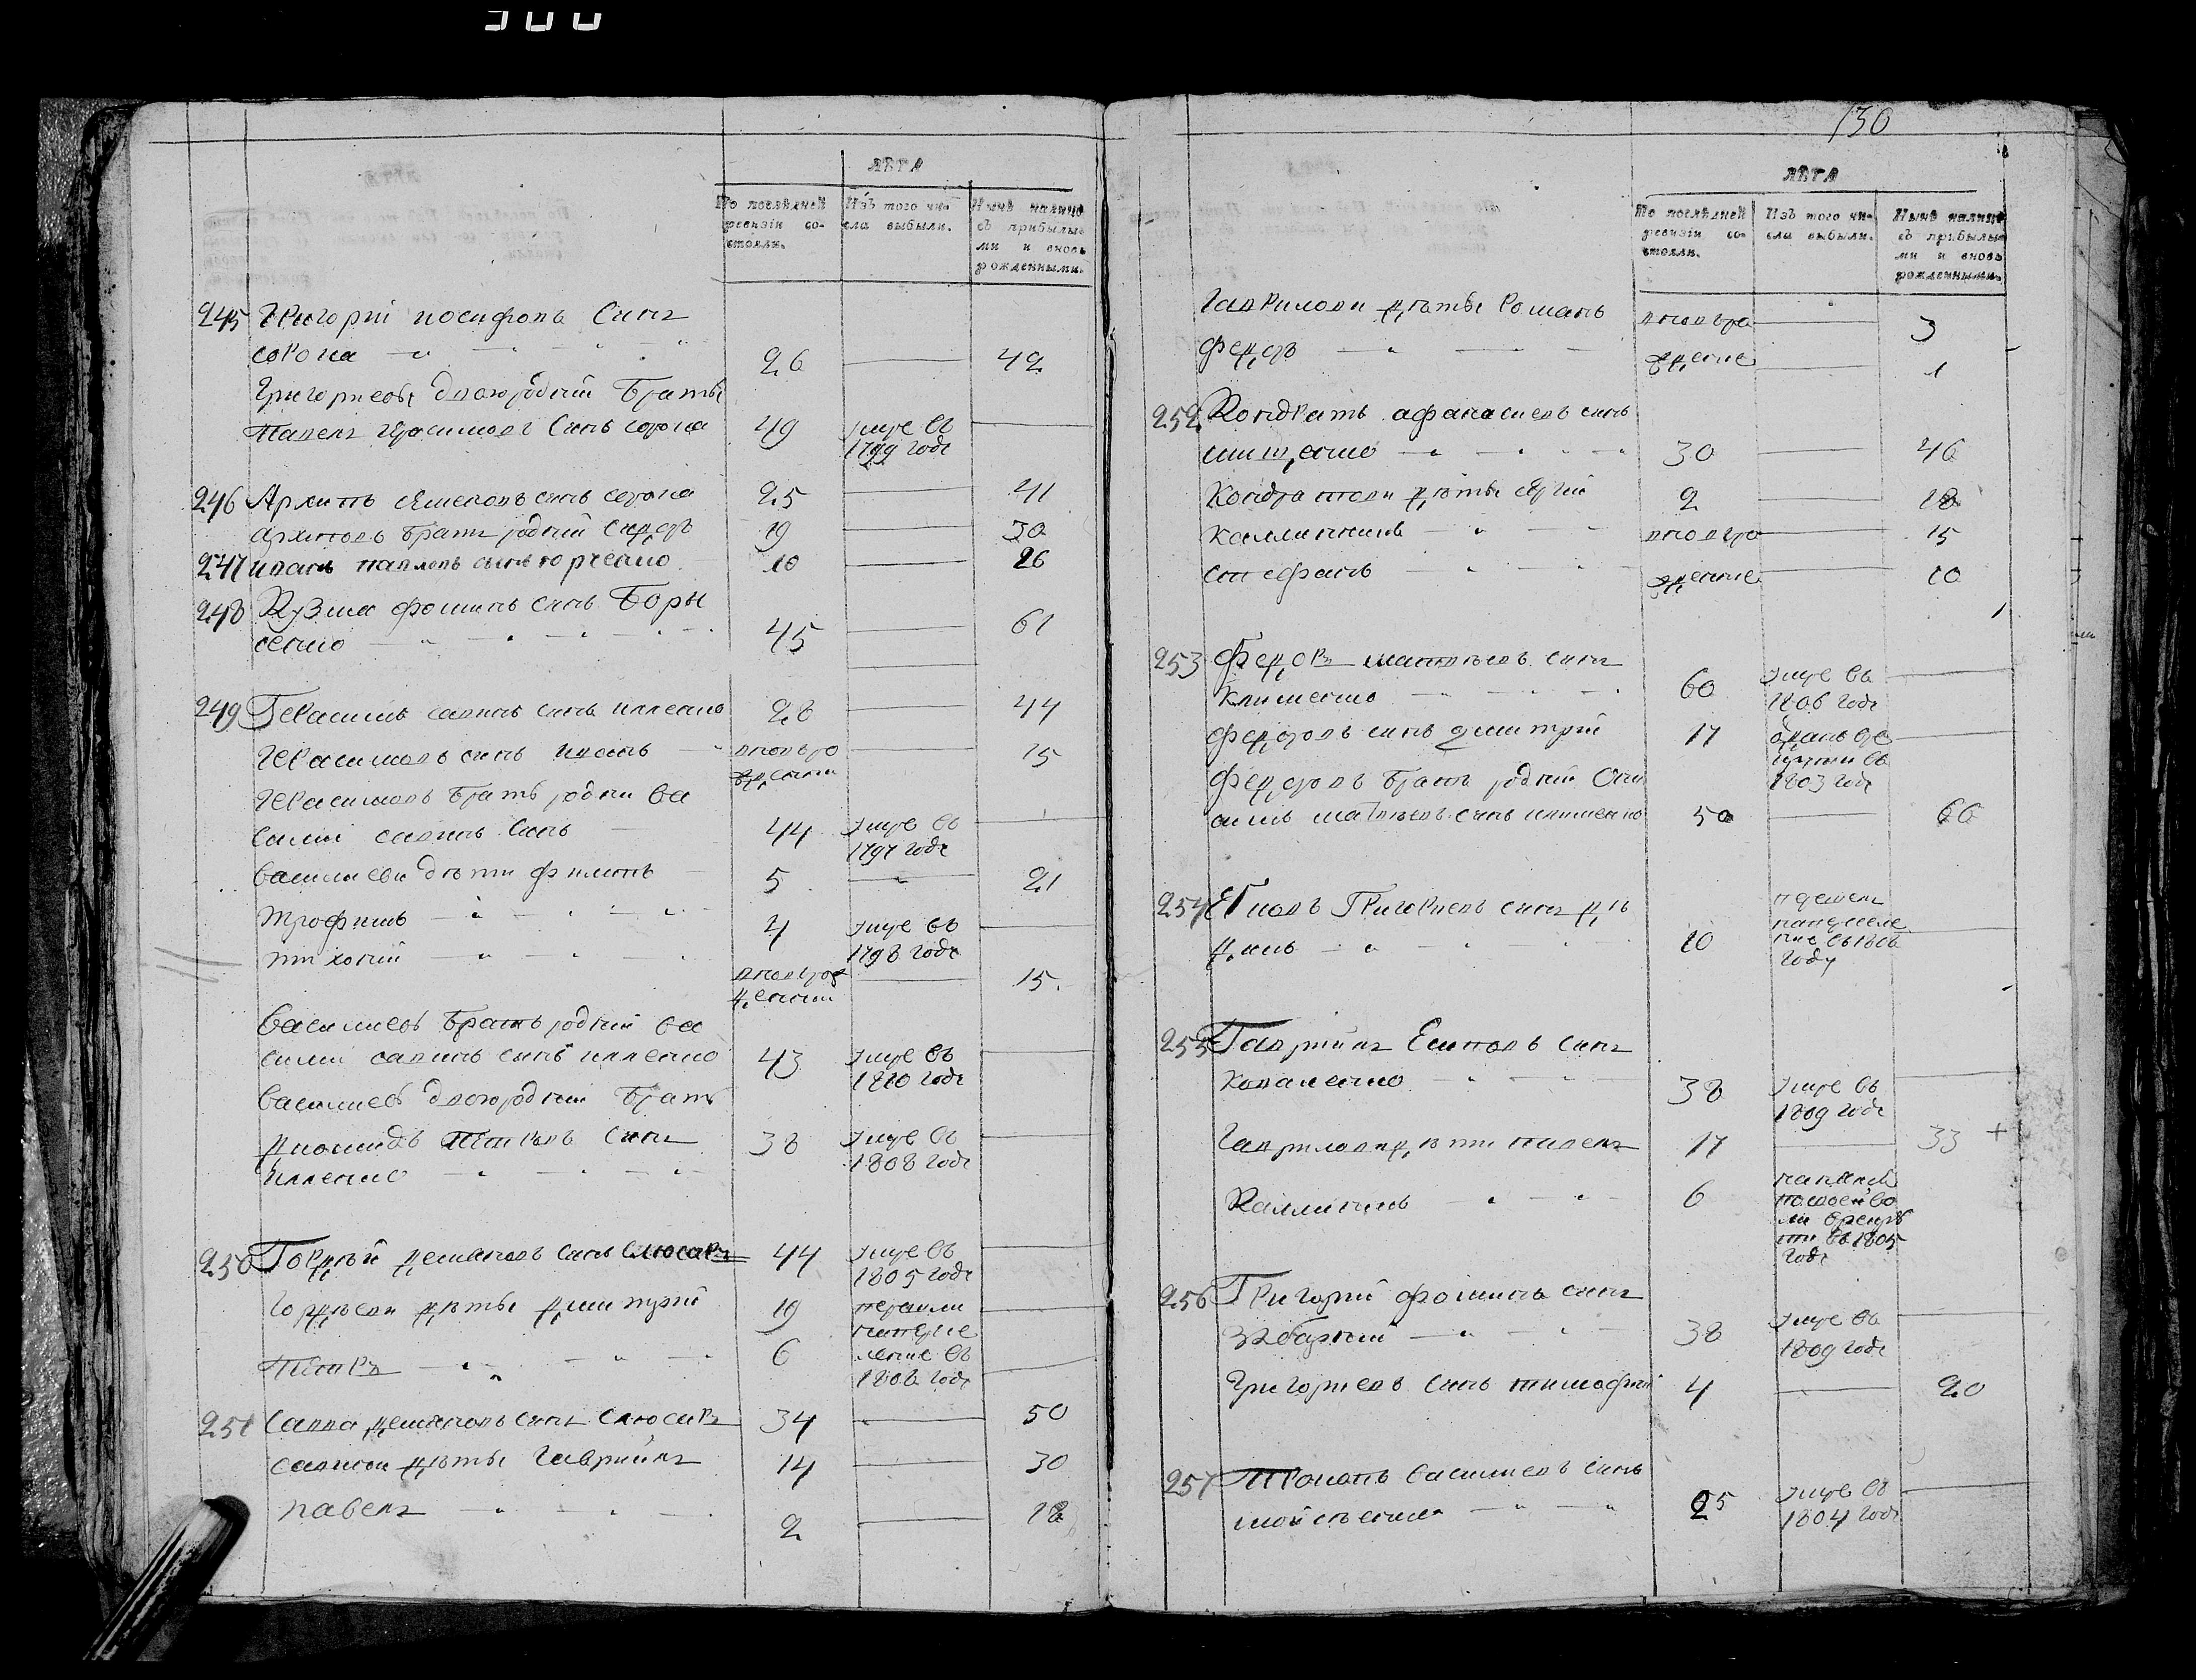 300
ЛѢТА
По послѣдней ревизіи со- стояли.
Изъ того чи- сла выбыли.
Нынѣ налицо съ прибылы- ми и вновь рожденными.
245 Григорий иосифовъ Синъ
сорока 26 42
Григориевъ двоюродний братъ
Павелъ Герасимовъ Синъ сорока 49 умре въ
1799 годе
246 Архипъ Семеновъ синъ сорока 25 41
архиповъ братъ родний Сидоръ 19 30
247 иванъ павловъ синъ юрченко 10 26
248 Кузма фоминъ синъ Боры
сенко 45 61
249 Герасимъ савинъ синъ илленко 28 44
Герасимовъ синъ иванъ вновъро 15
жденний
Герасимовъ братъ родни ва
силий савинъ Синъ 44 умре въ
1797 годе
василиеви дѣти филипъ 5 21
трофимъ 4 умре въ
1798 годе
тихоний вновърож 15.
денний
василиевъ братъ родний ва
силий савинъ синъ илленко 43 умре въ
1810 годе
василиевъ двоюродний братъ
Диомидъ Петровъ Синъ 38 умре въ
илленко 1808 годе
250 Гордѣй демяновъ синъ слюсаръ 44 умре въ
1805 годе
Гордѣеви дѣты дмитрий 19
Петръ 6
1808 годе
251 Савва демяновъ синъ Слюсаръ 34 50
савини дѣты Гаврийлъ 14 30
павелъ 2 18
130
ЛѢТА
По послѣдней ревизіи со- стояли.
Изъ того чи- сла выбыли.
Нынѣ налицо съ прибылы- ми и вновь рожденными.
Гаврилови дѣты Романъ вновъро 3
федоръ жденние 1
252 Кондратъ афанасиевъ синъ
30 46
Кондратови дѣты сергий 2 18
Каллиникъ вновъро 15
стефанъ жденние 10
253 Федоръ матвѣевъ синъ
клименко 60 умре въ
1806 годе
федоровъ синъ дмитрий 17 отданъ въре
крути въ
1803 годе
Федоровъ братъ родний Они
симъ матвѣевъ синъ клименко 50 66
254 Григориевъ синъ дѣ
дикъ 10
году
255 Гаврийлъ Есиповъ синъ
коваленко 38 умре въ
1809 годе
Гаврилови дѣти павелъ 17 33 +
Каллиникъ 6
въ 1805
годе
256 Григорий фоминъ синъ
38 умре въ
1809 годе
Григориевъ Синъ тимофий 4 20
257 василиевъ синъ
мойсѣенко 25 умре въ
1804 годе